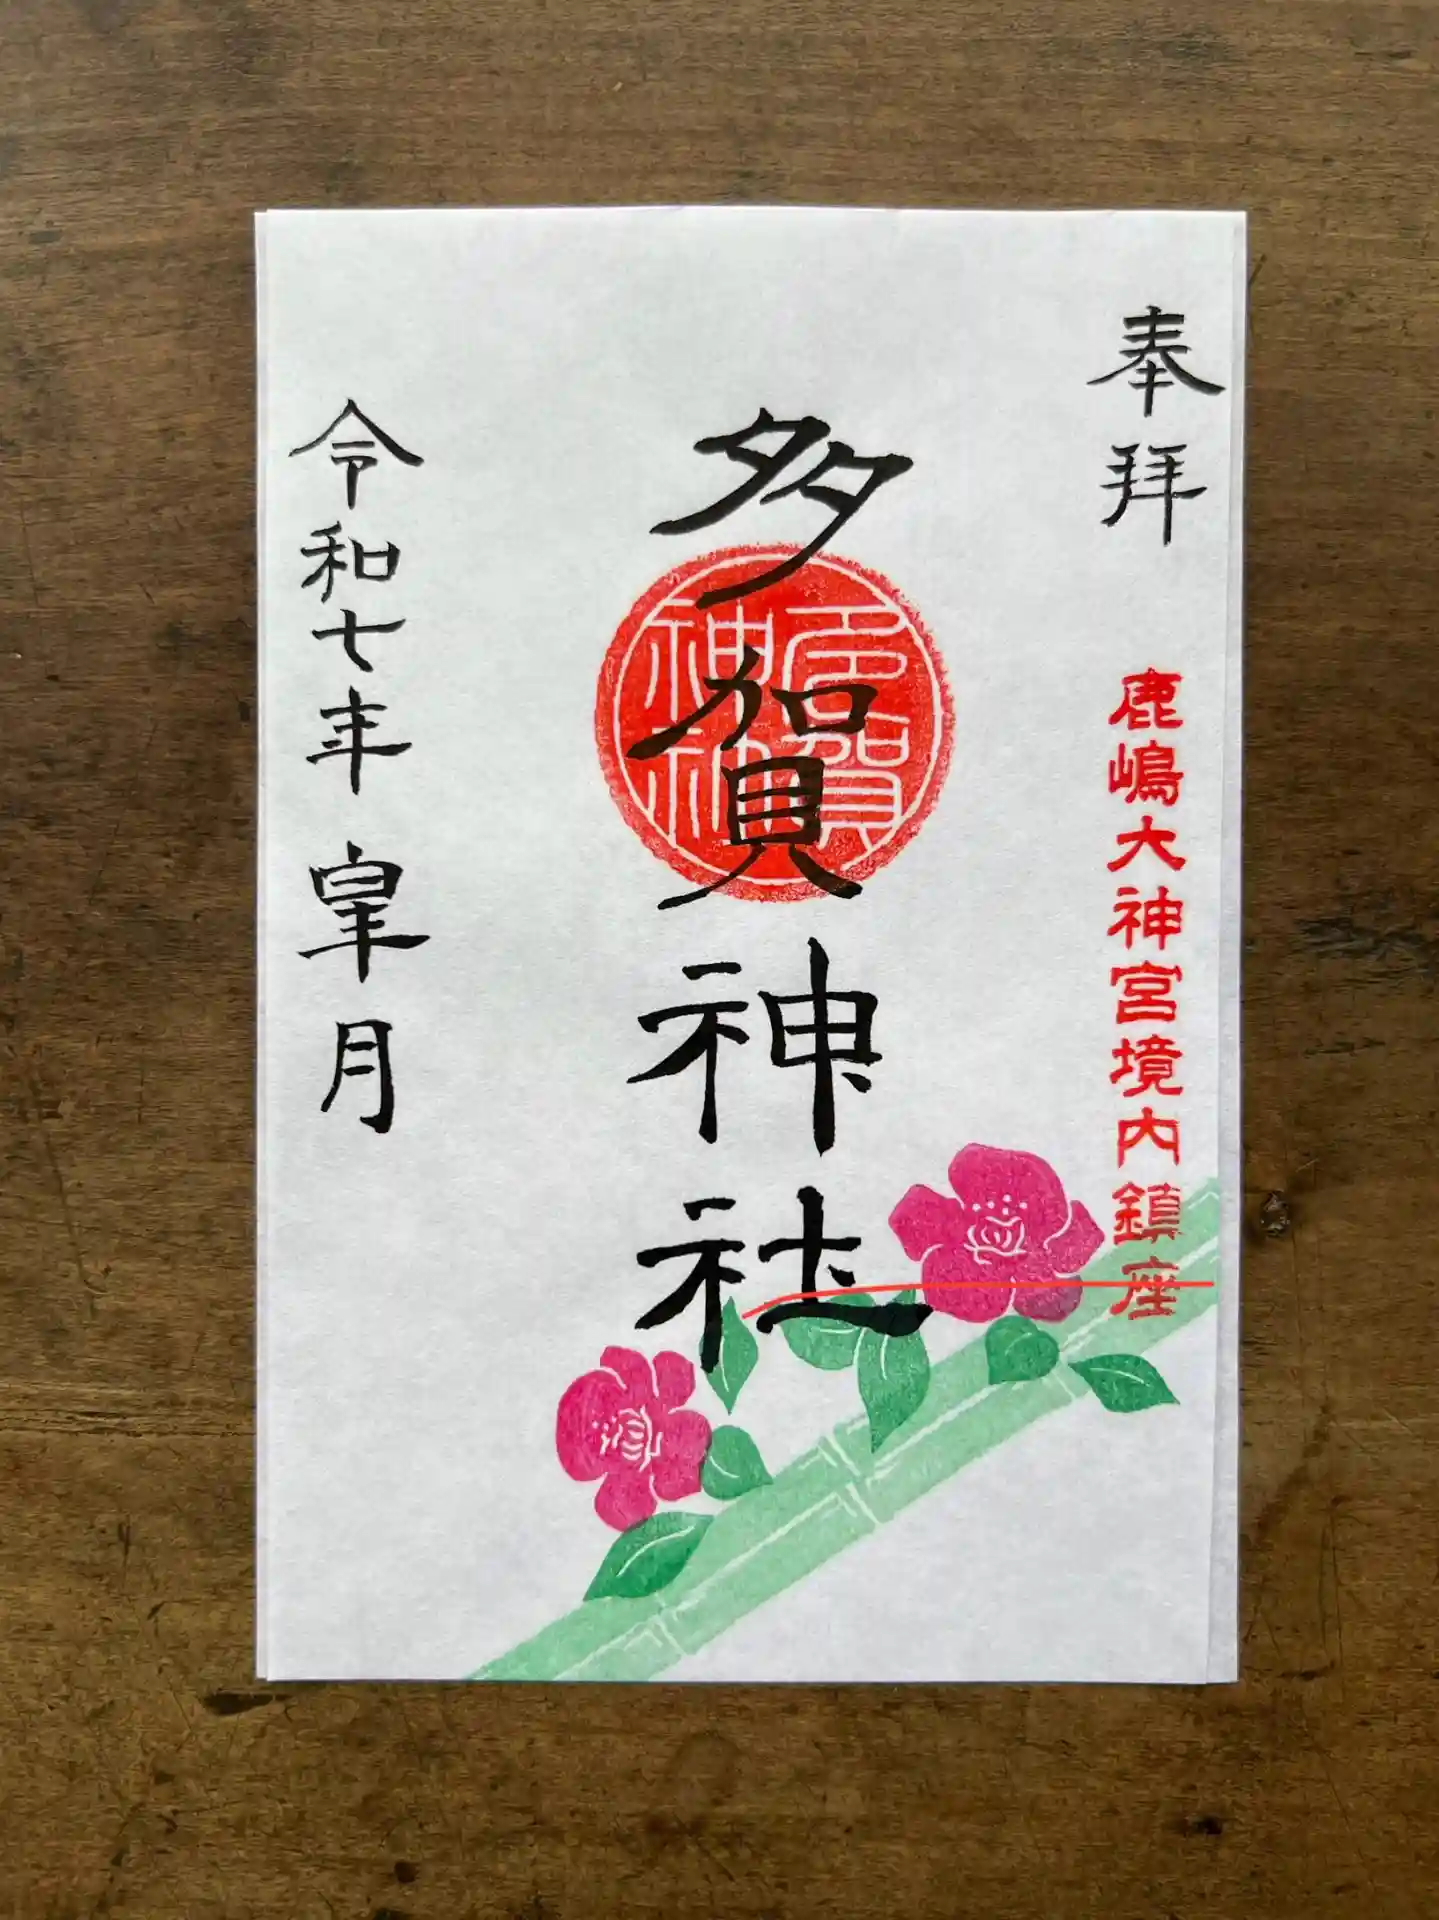 奉拝
鹿嶋大神宮境内鎮座
多賀神社
多賀
神社
令和七年皐月